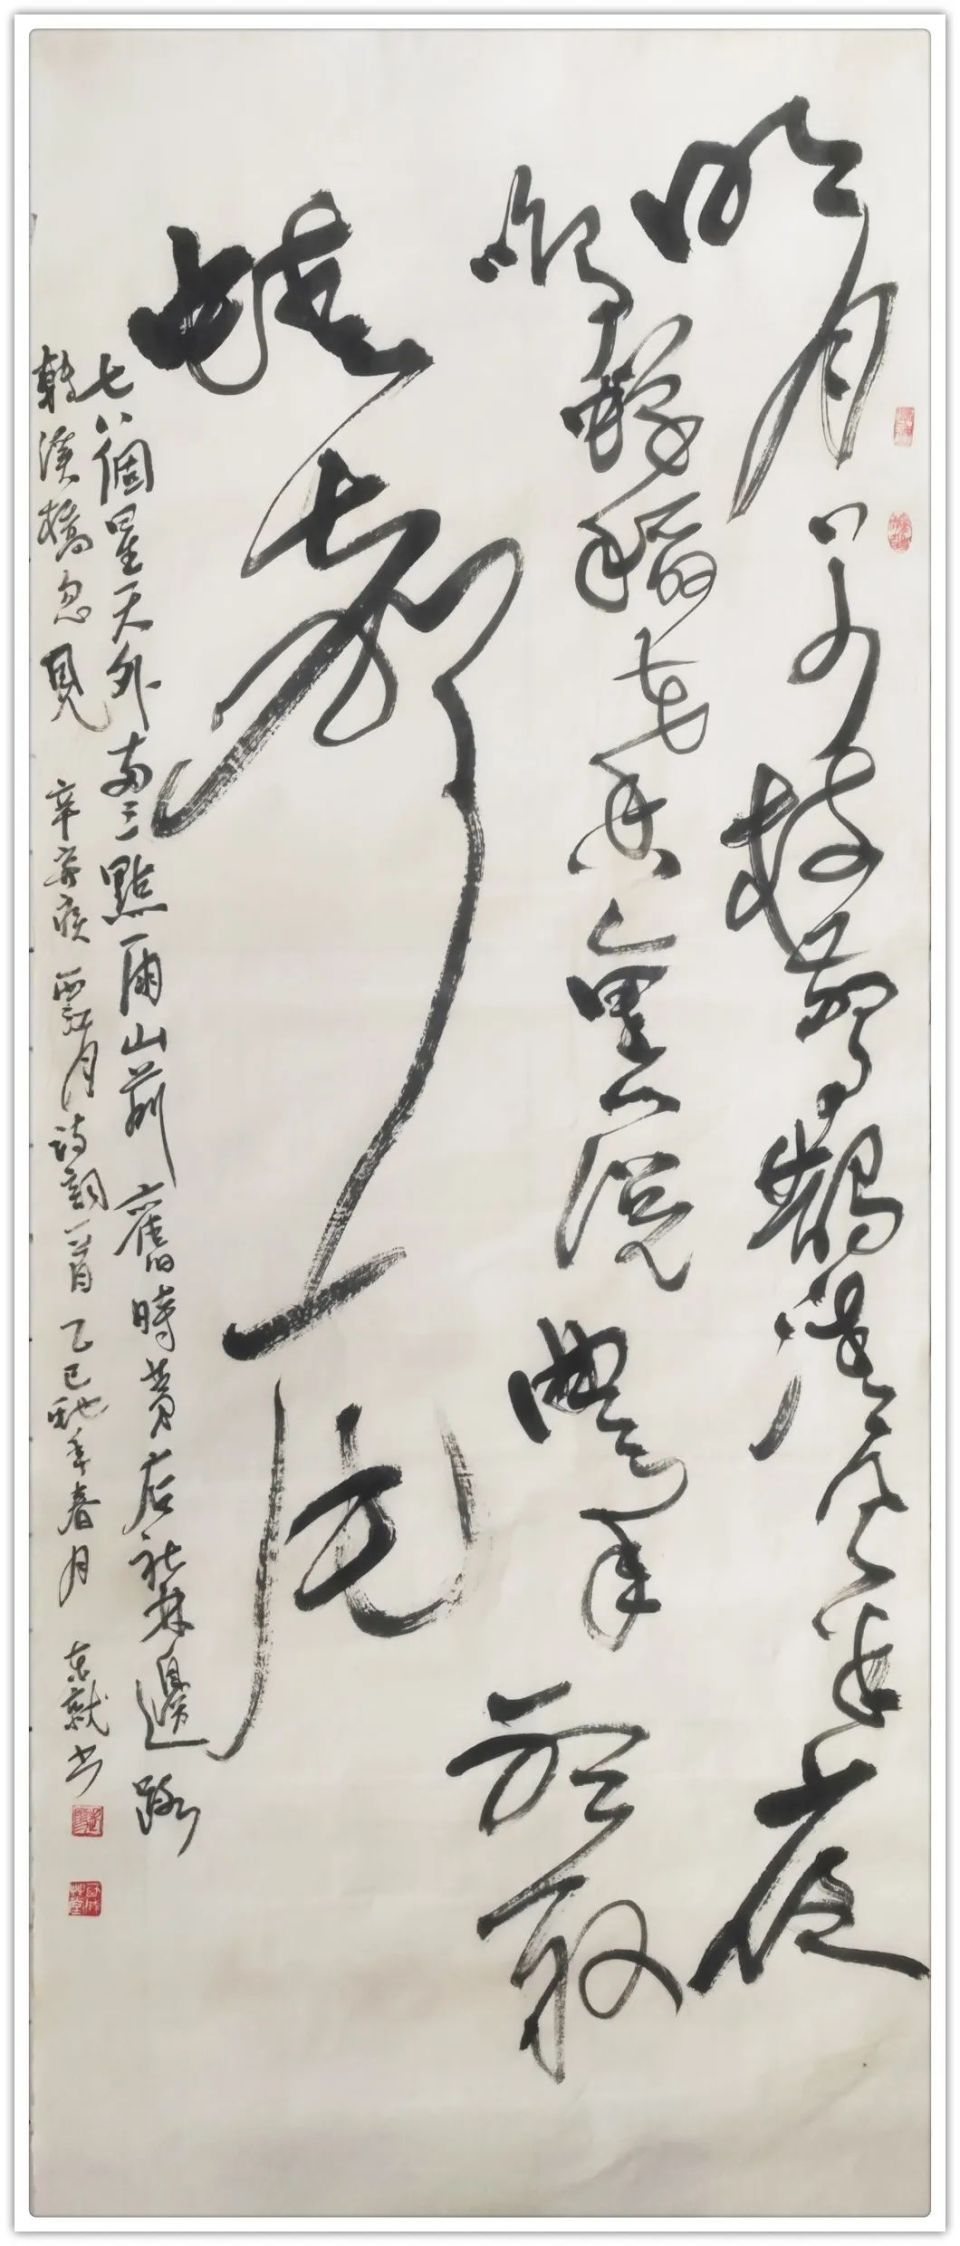 明月别枝驚鵲清風半夜
鳴蟬稻花香裏說豐年聽取
蛙聲一片
七八個星天外两三點雨山前舊時茅店社林邊路
轉溪橋忽見 辛弃疾 西江月诗詞一首 乙巳蛇年春月 书